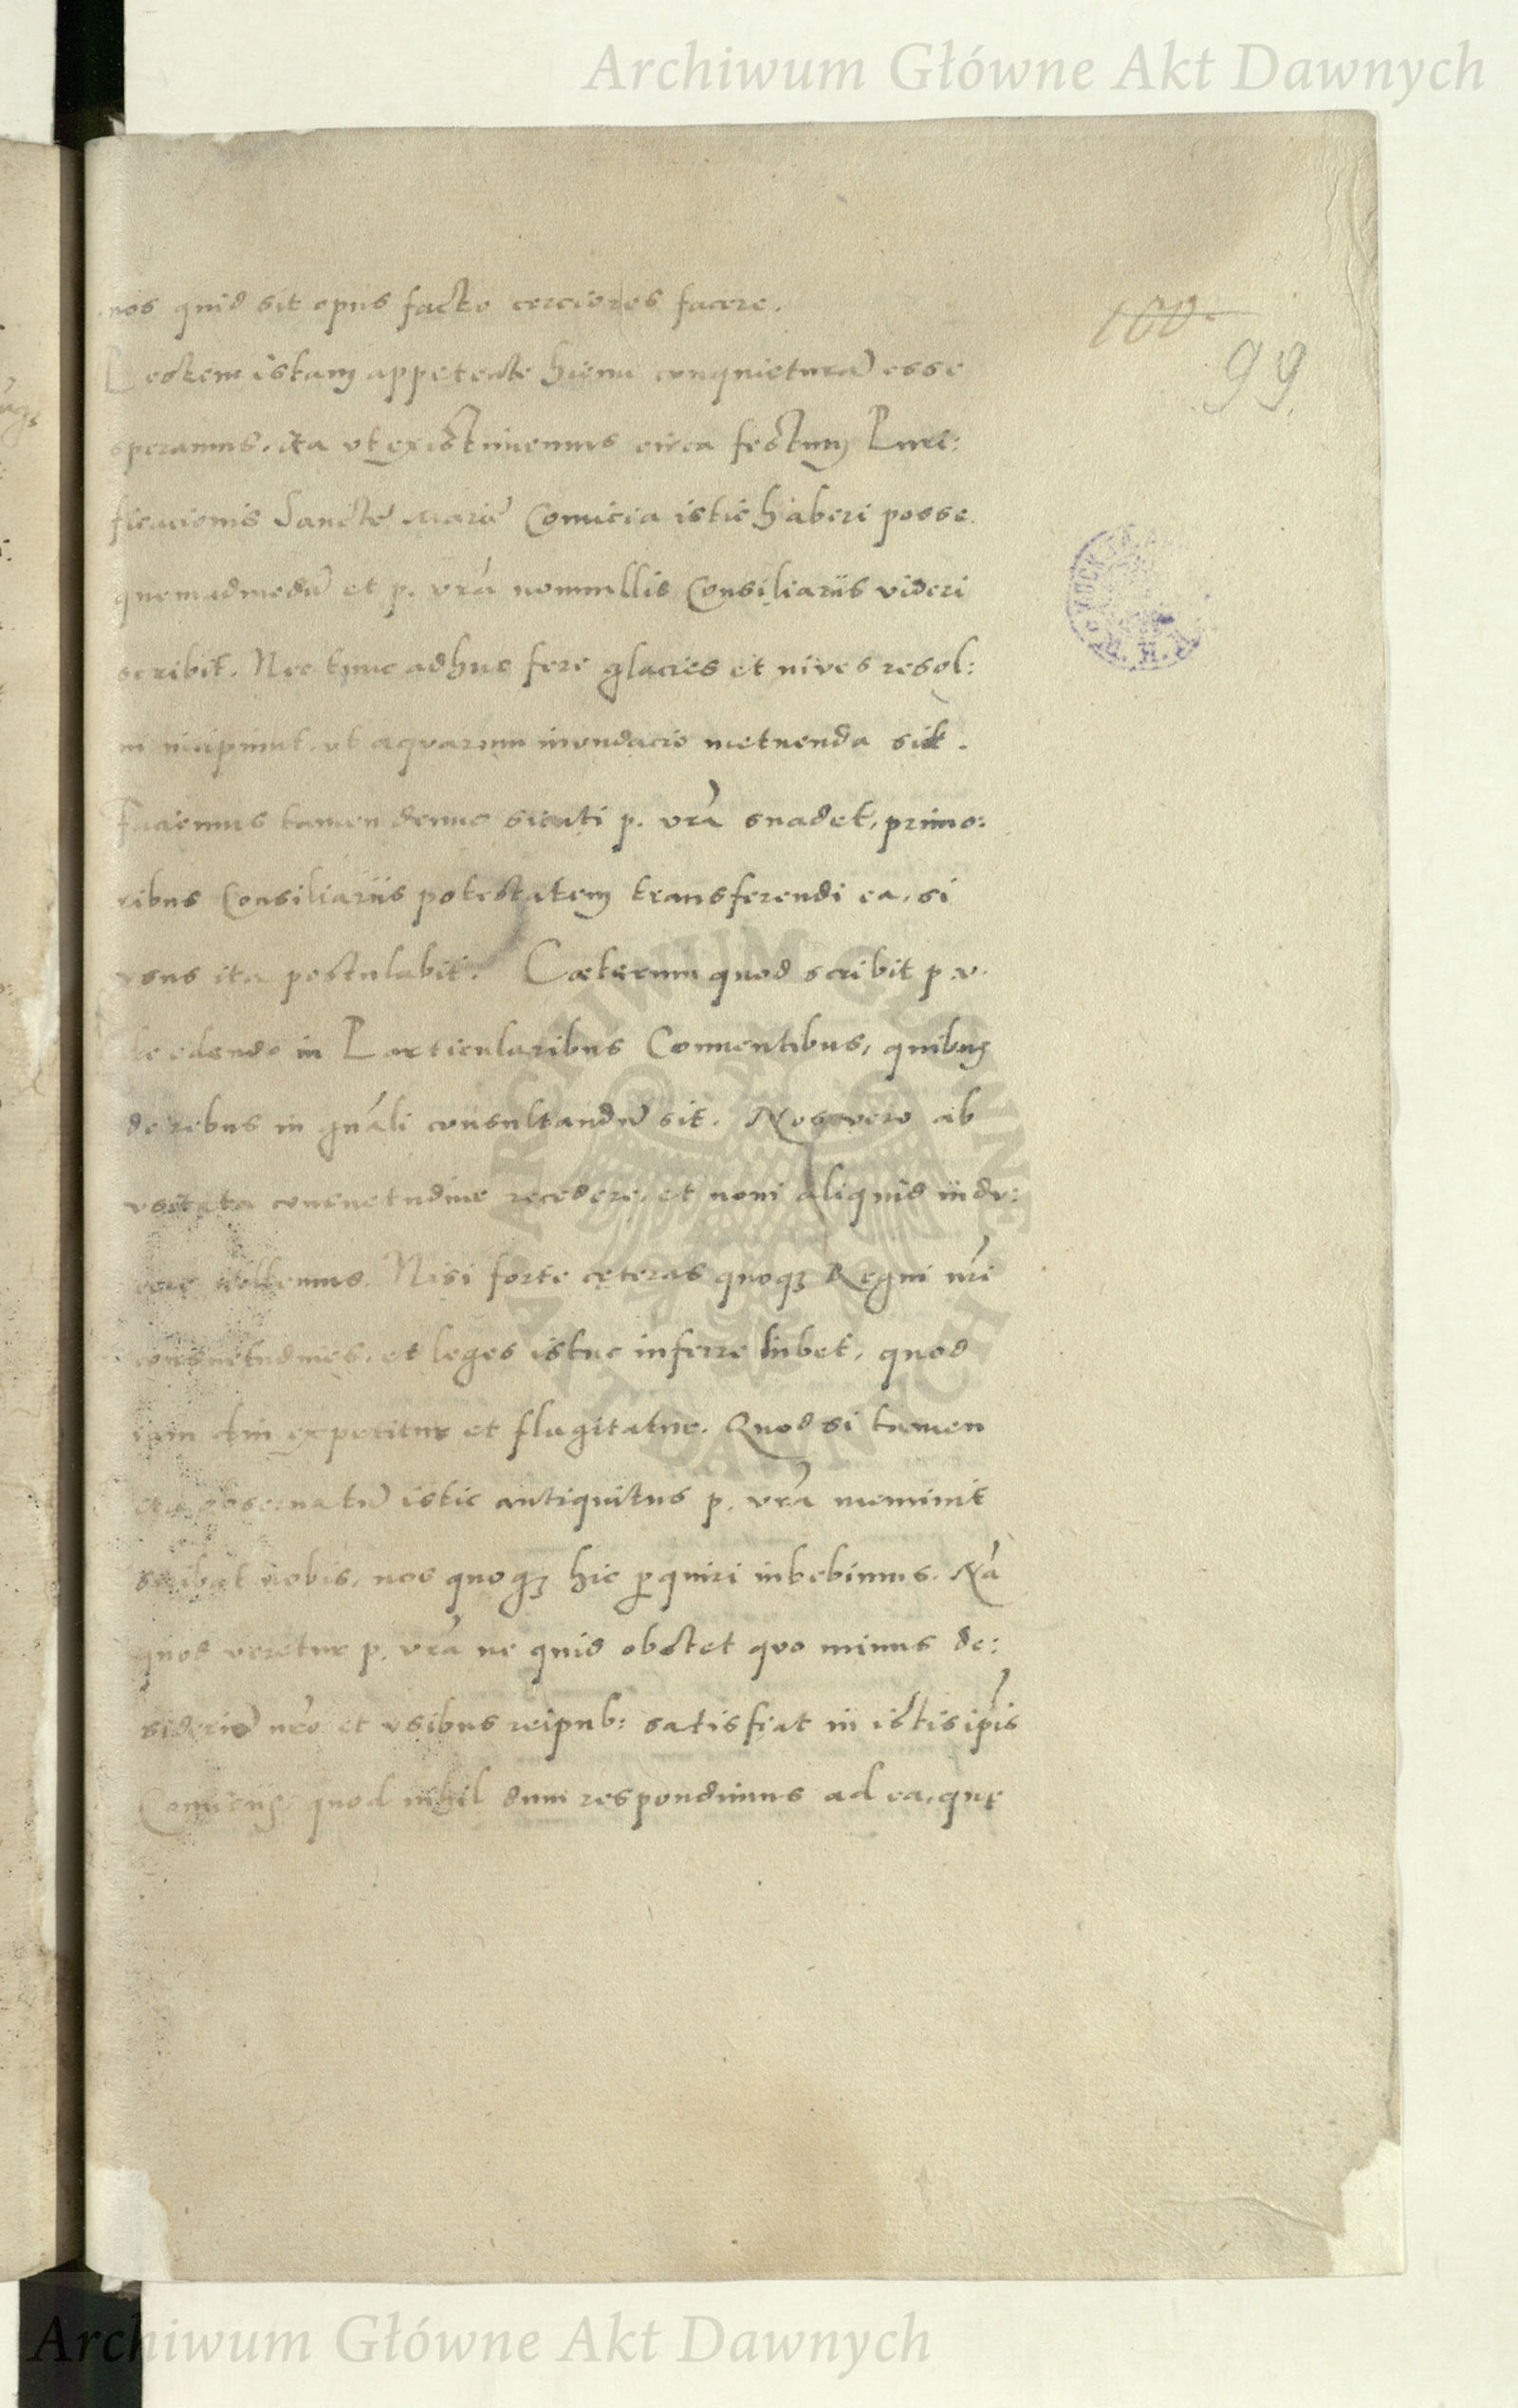 Archiwum Główne Akt Dawnych
nos quid sit opus facto cerciores facere.
100.
Pestem istam appetente hieme conquieturā esse
99
speramus, ita ut existimemus circa festum Puri:
ficacionis Sanctę Marię Comicia istic haberi posse.
quemadmodū et p. vrā nonnullis Consiliariis videri
scribit. Nec tunc adhuc fere glacies et nives resol:
vi incipiunt, ut aquarum inundacio metuenda sit.
Faciemus tamen denuo sicuti p. vrā suadet, primo:
ribus Consiliariis potestatem transferendi ea, si
usus ita postulabit. Cæterum quod scribit p. v.
de edendo in Particularibus Conventibus, quibus
de rebus in gnāli consultandū sit. Nos vero ab
usitata consuetudine recedere, et novi aliquid indu:
cere nollemus. Nisi forte ceteras quoqʒ Regni nri
consuetudines, et leges istuc inferre lubet, quod
iam diu expetitur et flagitatur. Quod si tamen
observatū istic antiquitus p. vrā meminit
scribat nobis, nos quoqʒ hic perquiri iubebimus. Nā
quod veretur p. vrā ne quid obstet quo minus de:
siderio nro et usibus reipub: satisfiat in istis ipsis
Comiciis, quod nihil dum respondimus ad ea, quę
ARCHIWUM GŁÓWNE AKT DAWNYCH
Archiwum Główne Akt Dawnych